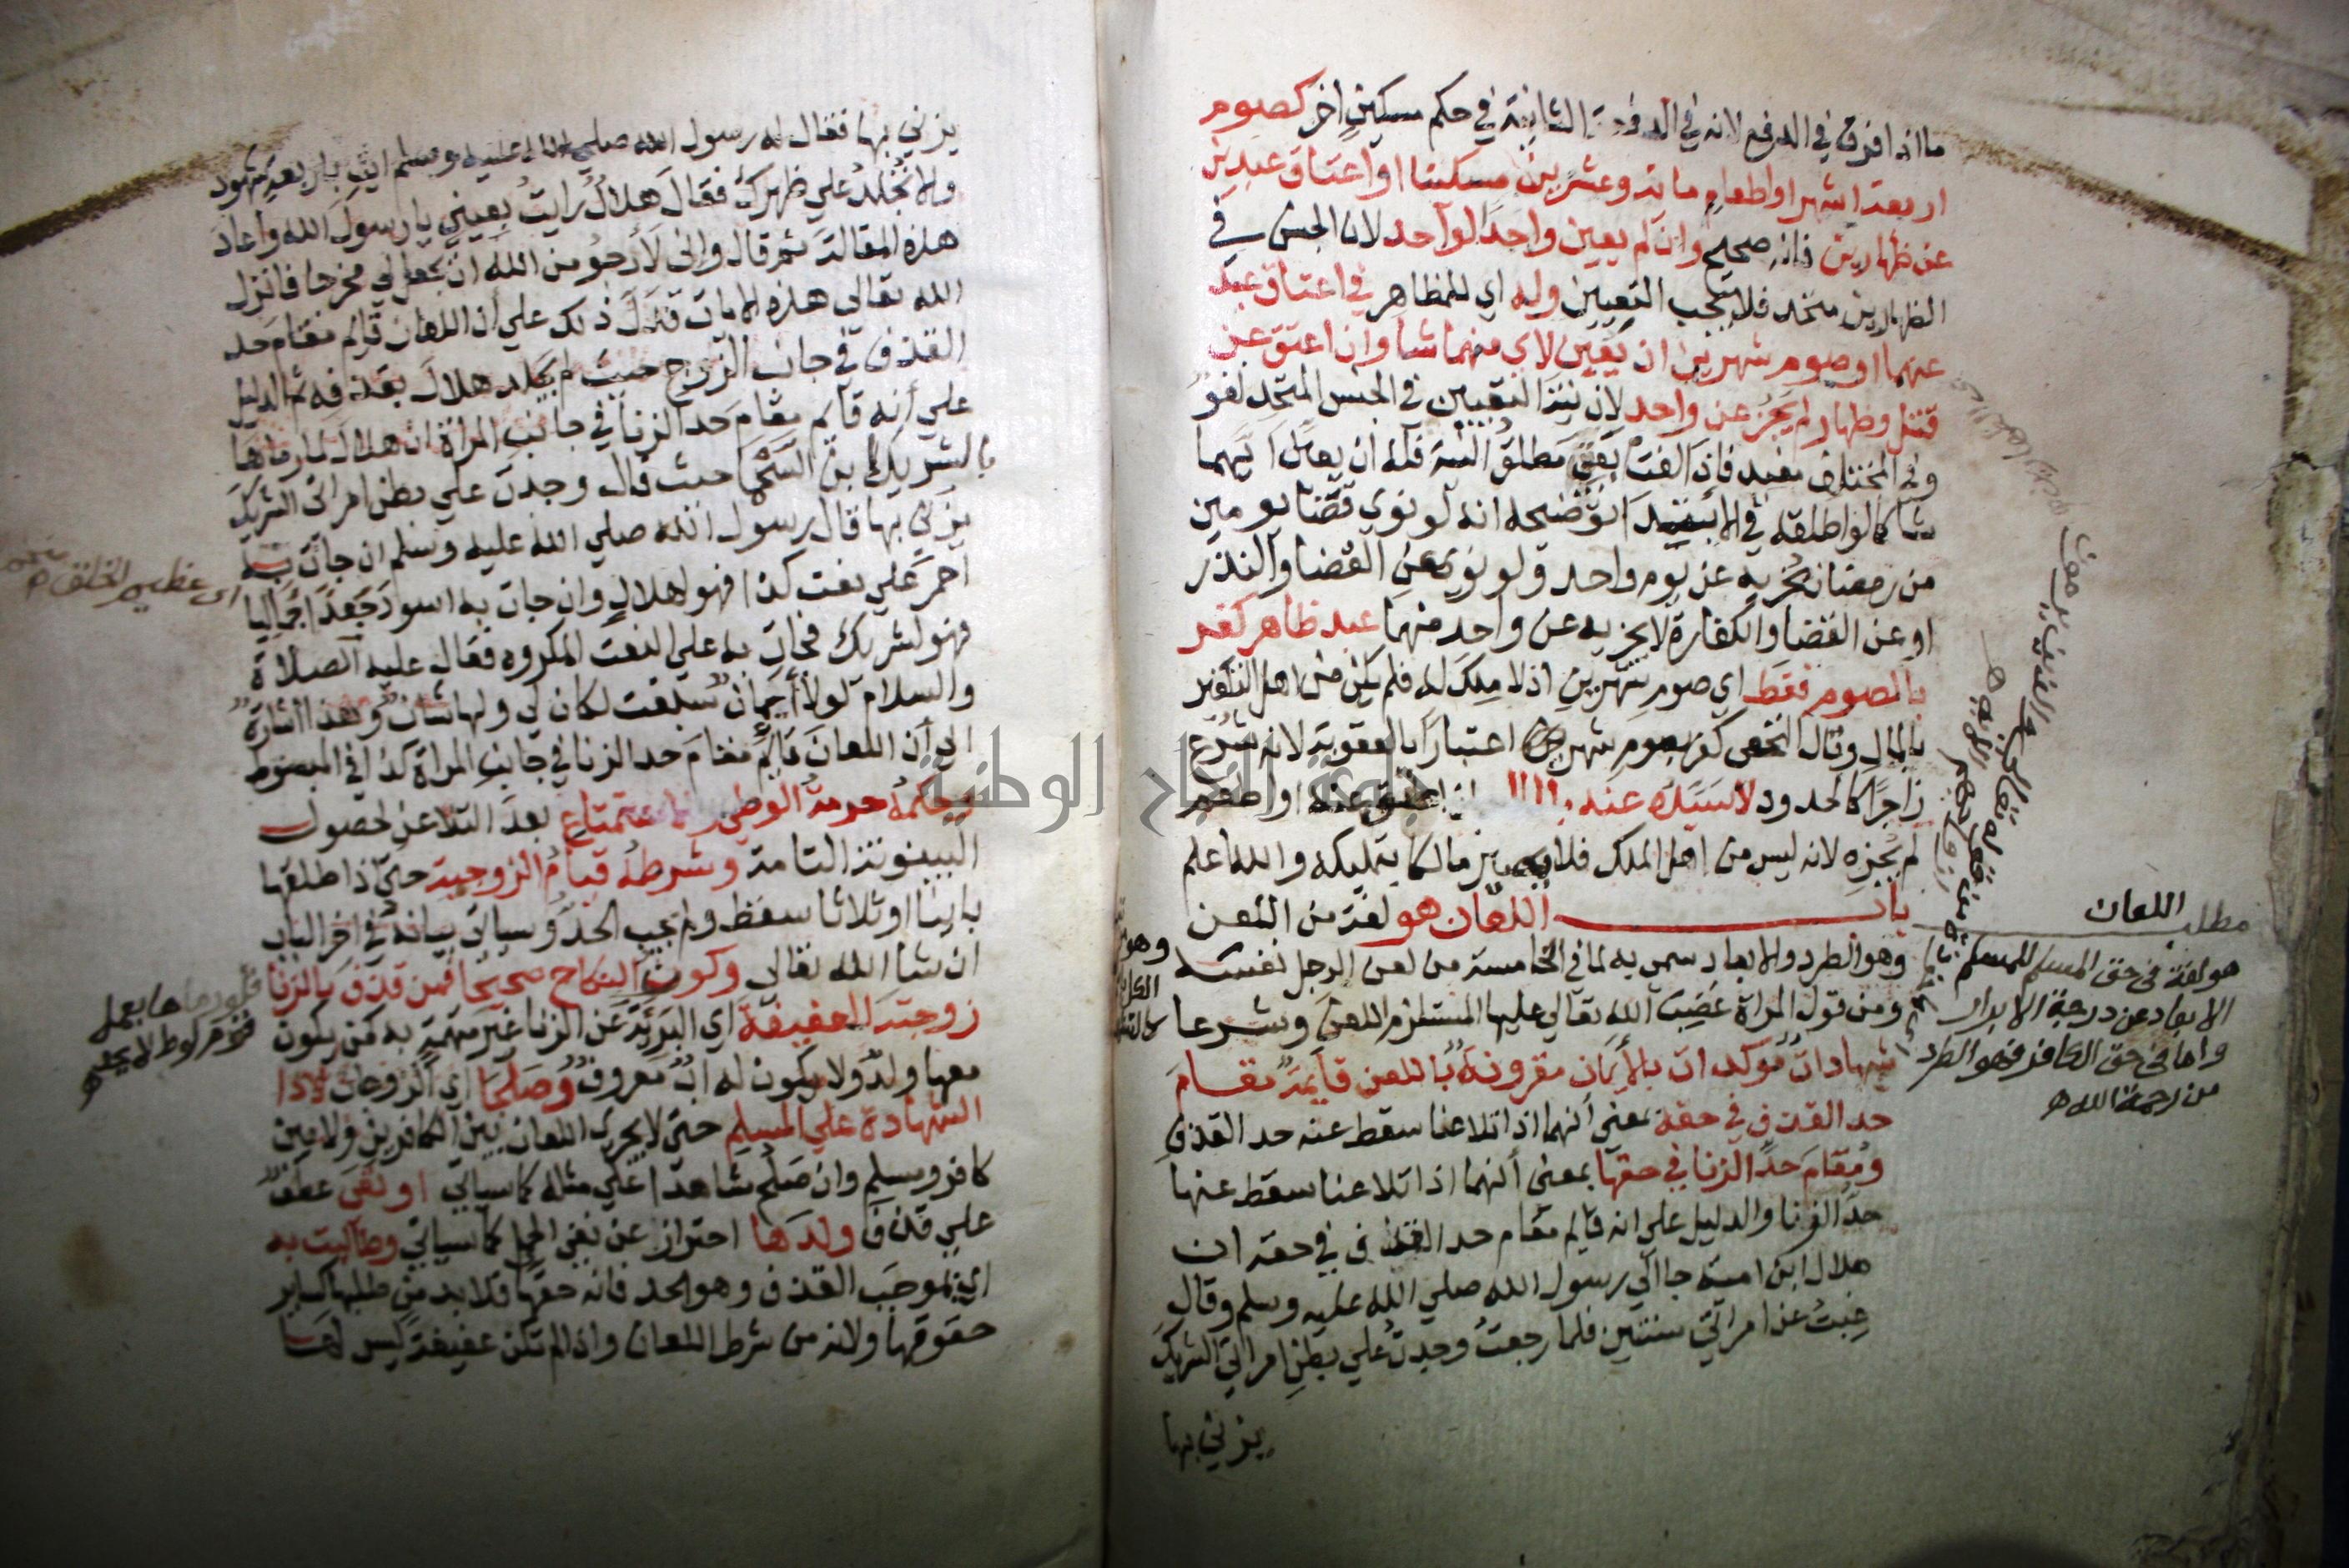 ما اذا فرق في الدفع لانه في الدفعة الثانية في حكم مسكين اخر كصوم
اربعة اشهر او اطعام ماية وعشرين مسكينا او اعتاق عبدين
عن ظهارين فانه صحيح وان لم يعين واحدا لواحد لان الجنس في
الظهارين متحد فلا يجب التعيين وله اي للمظاهر في اعتاق عبد
عنهما او صوم شهرين ان يعين لاي منهما شا وان اعتق عن
قتل وظهار لم يجز عن واحد لان نية التعيين في الجنس المتحد لغو
وفي المختلف مفيد فاذا لغت بقي مطلق النية فله ان يعين ايهما
شا كما لو اطلقه في الابتدا توضيحه انه لو نوي قضا يومين
من رمضان يجزيه عن يوم واحد ولو نوي عن القضا والنذر
او عن القضا والكفارة لا يجزيه عن واحد منهما عبد ظاهر كفر
بالصوم فقط اي صوم شهرين اذ لا ملك له فلم يكن من اهل التكفير
بالمال وقال النخعي كفر بصوم شهر اعتبارا بالعقوبة لانه شرع
زاجرا كالحدود لا سيده عنه اعتق عنه او اطعم
لم يجزه لانه ليس من اهل الملك فلا يصير مالكا بتمليكه والله اعلم
باب اللعان هو لغة من اللعن
وهو الطرد والابعاد سمي به لما في الخامسة من لعن الرجل نفسه
ومن قول المراة غضب الله تعالي عليها المستلزم اللعن وشرعا
شهادات مؤكدات بالأيمان مقرونة باللعن قايمة مقام
حد القذف في حقه بمعني أنهما اذا تلاعنا سقط عنه حد القذف
ومقام حد الزنا في حقها بمعني أنهما اذا تلاعنا سقط عنها
حد الزنا والدليل علي انه قايم مقام حد القذف في حقه ان
هلال ابن امية جا الي رسول الله صلي الله عليه وسلم وقال
غبت عن امراتي سنتين فلما رجعت وجدت علي بطن امراتي الشريك
يزني بها
مطلب اللعان
هو لغة في حق المسلم للمسلم
الابعاد عن درجة الابرار
واما في حق الكافر فهو الطرد
من رحمة الله ه
يزني بها فقال له رسول الله صلي الله عليه وسلم ايت باربعة شهود
والا تجلد علي ظهرك فقال هلال رايت بعيني يا رسول الله واعاد
هذه المقالة ثم قال واني لأرجو من الله ان يجعل لي مخرجا فانزل
الله تعالى هذه الايات فدل ذلك علي أن اللعان قايم مقام حد
القذف في جانب الزوج حيث لم يجلد هلال بقذفه ثم الدليل
علي أنه قايم مقام حد الزنا في جانب المراة ان هلالا لما رماها
بالشريك بن السحما حيث قال وجدت علي بطن امراتى الشريك
يزني بها قال رسول الله صلي الله عليه وسلم ان جات به
احمر علي نعت كذا فهو لهلال وان جات به اسود جعدا جماليا
فهو لشريك فجات به علي النعت المكروه فقال عليه الصلاة
والسلام لولا أيمان سبقت لكان لي ولها شان وهذا اشارة
الي أن اللعان قايم مقام حد الزنا في جانب المراة كذا في المبسوط
وحكمه حرمة الوطي والاستمتاع بعد التلاعن لحصول
البينونة التامة وشرطه قيام الزوجية حتي اذا طلقها
باينا او ثلاثا سقط ولم يجب الحد وسياتي بيانه في اخر الباب
ان شا الله تعالي وكون النكاح صحيحا فمن قذف بالزنا
زوجته العفيفة اي البريئة عن الزنا غير متهمة به كمن يكون
معها ولد ولا يكون له اب معروف وصلحا اي الزوجان لادا
الشهادة علي المسلم حتي لا يجري اللعان بين الكافرين ولا بين
كافر ومسلم وان صلح شاهدا علي مثله كما سياتي او نفي عطف
علي قذف ولدها احتراز عن نفي الحمل كما سياتي وطالبت به
اي بموجب القذف وهو الحد فانه حقها فلا بد من طلبها كساير
حقوقها ولانه من شرط اللعان واذا لم تكن عفيفة ليس لها
اي عظيم الخلق ه
فلو رماها بعمل
قوم لوط لا يجب
جامعة النجاح الوطنية